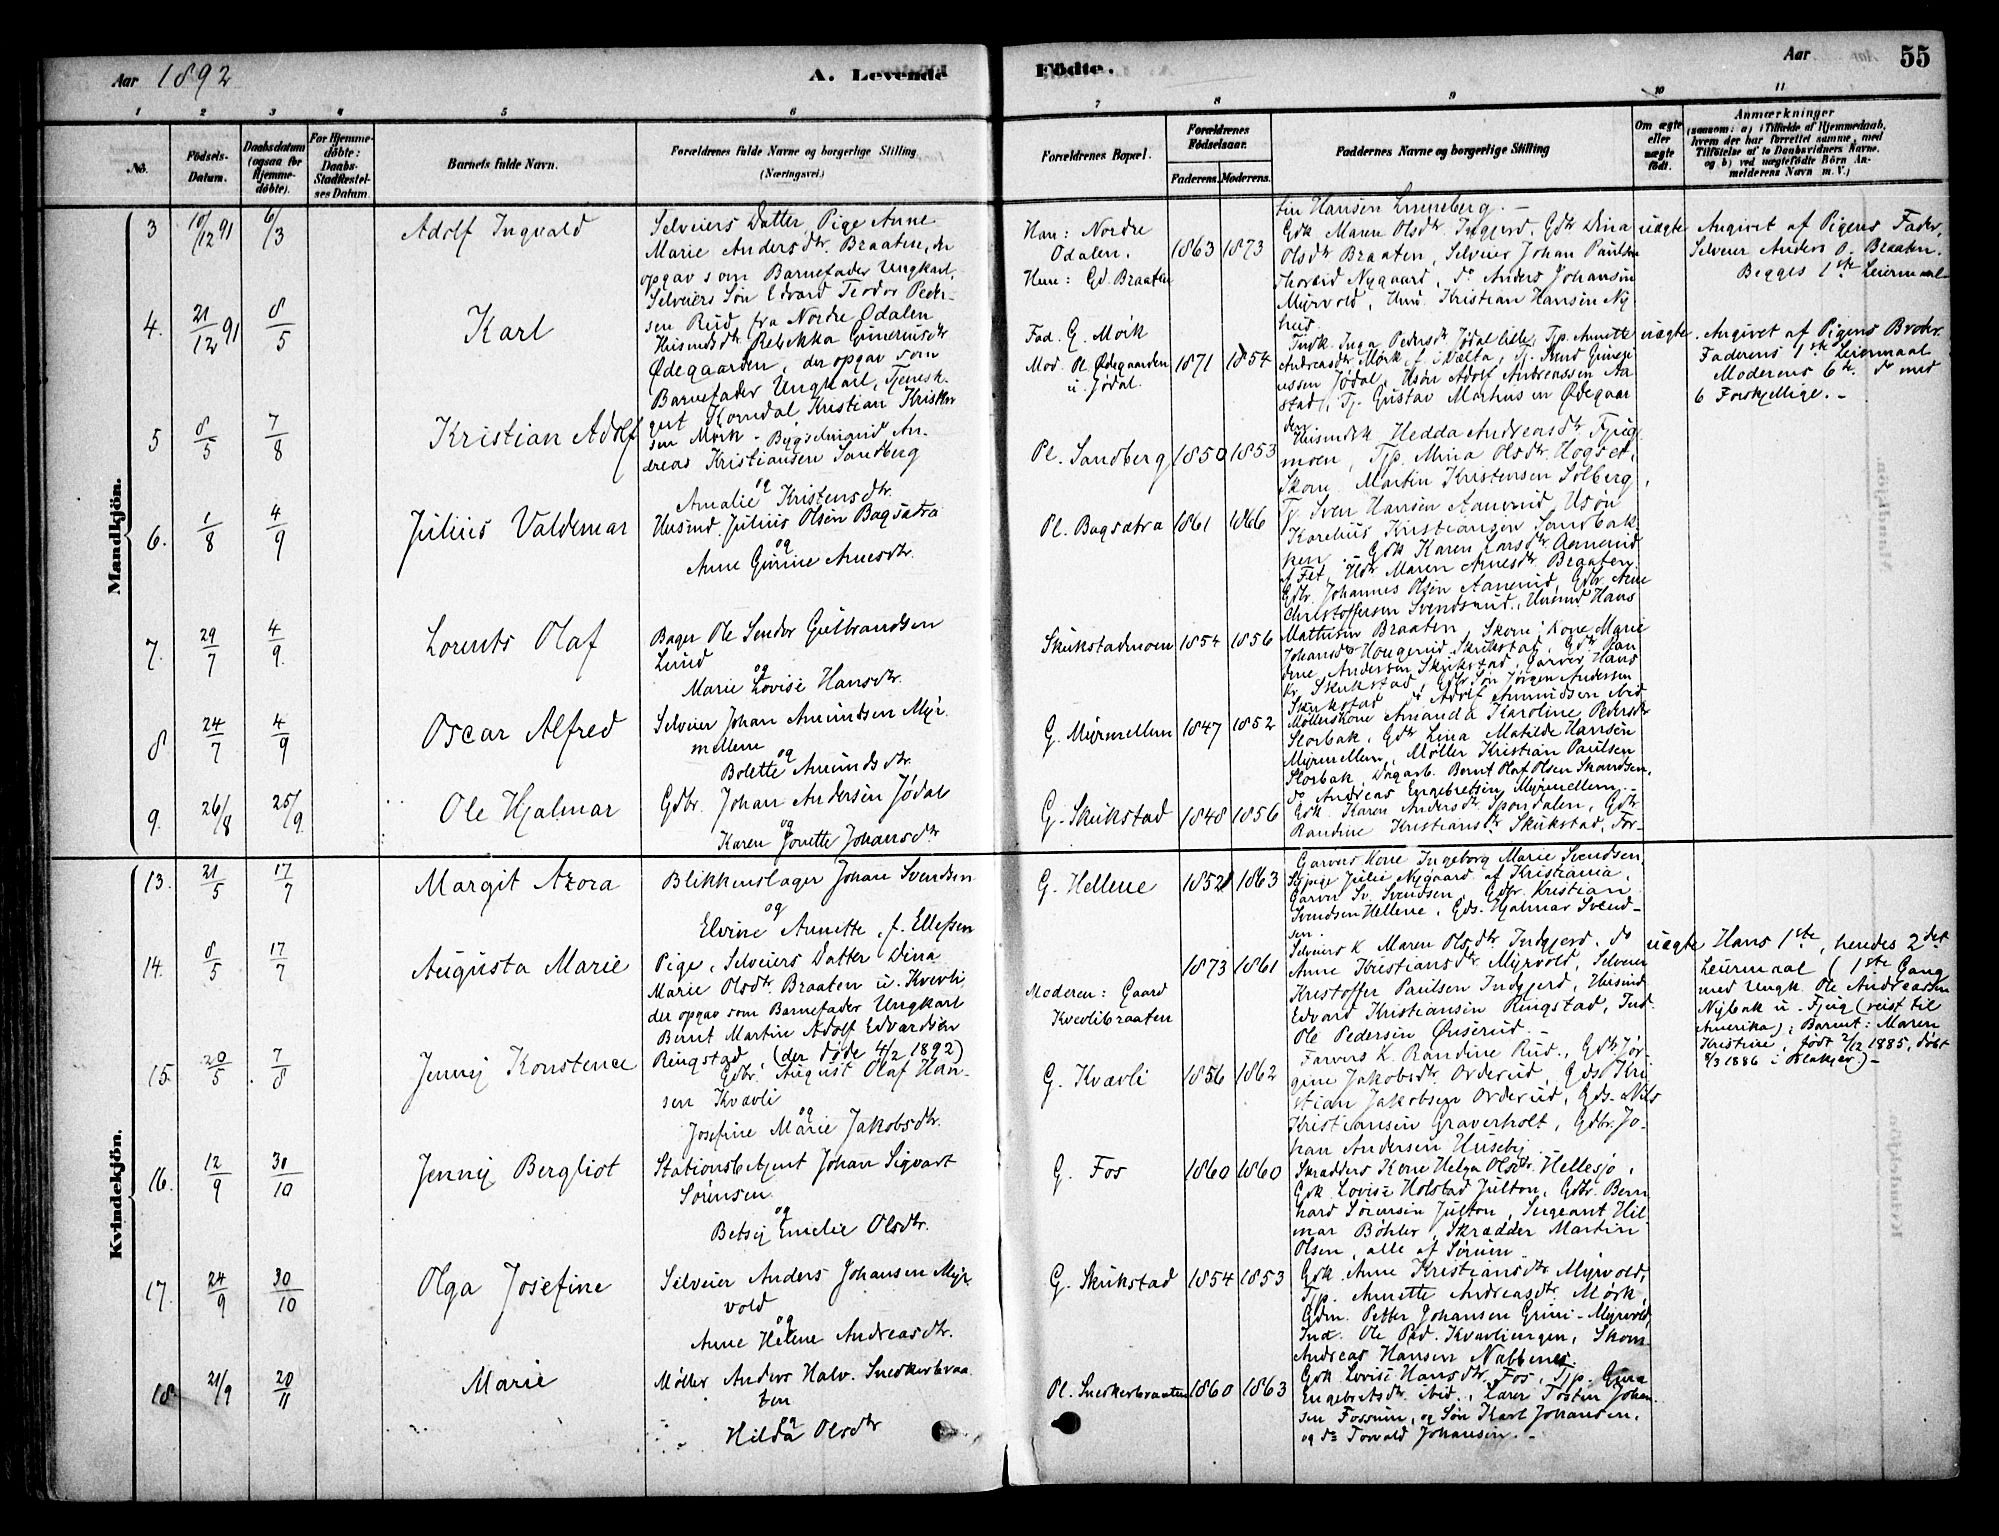 Aar 1892
A. Levende
Fødte.
Aar
55
1 2 3 4 5 6 7 8 9 10 11
No.
Fødsels-Datum.
Daabsdatum (ogsaa for Hjemme-døbte).
For Hjemme-døbte: Daabs-Stadfæstel-ses Datum.
Barnets fulde Navn.
Forældrenes fulde Navne og borgerlige Stilling (Næringsvei.)
Forældrenes Bopæl.
Forældrenes Fødselsaar.
Faderens. Moderens.
Faddernes Navne og borgerlige Stilling
Om ægte eller uægte født.
Anmærkninger
(saasom: a) i Tilfælde af Hjemmedaab, hvem der har forrettet samme, med Tilføielse af to Daabsvidners Navne, og b) ved uægtefødte Börn An-melderens Navn m. V.)
Mandkjön.
3 10/12 91 6/3 Adolf Ingvald
Selveiers Datter, Pige Anne
Marie Andersdtr. Braaten, der
opgav som Barnefader Ungkarl,
Selveiers Søn Edvard Teodor Peder-
sen Rud fra Nordre Odalen
Han: Nordre
Odalen.
Hun: Gd. Braaten
1863 1873
tin Hansen Linneberg. -
Gdk Maren Olsdtr. Indgjerd, Gdtr Dina
Olsdtr Braaten, Selveier Johan Paulsen
Nygaard, do Anders Johansen
Myrvold, Kristian Hansen Ny-
hus
uægte
Angivet af Pigens Fader,
Selveier Anders O. Braaten.
Begges 1ste Leiermaal
4. 21/12 91 8/5 Karl
Husmdsdtr. Rebekka Gunderiusdtr
Ødegaarden, der opgav som
Barnefader Ungkarl, Tjeneste-
gut Korndal Kristian Kristian-
sen Mørk -
Fad. G. Mørk
Mod. Pl. Ødegaarden
u. Jødal.
1871 1854
Indk. Inga Pedersdtr Jødal lille, Tjp. Annette
Andreasdtr Mørk,
Jødal, Adolf Andreassen Aa-
stad, Tj. Gustav Marthinsen Ødegaar
den
uægte
Angivet af Pigens Broder.
Faderens 1ste Leiermaal
Moderens 6te do med
6 Forskjellige. -
5 8/5 7/8 Kristian Adolf
Bygselmand An-
dreas Kristiansen Sandberg
og
Amalie Kristensdtr.
Pl. Sandberg 1850 1853
Husmdsk Hedda Andreasdtr Fjug-
moen, Tjp. Mina Olsdtr. Hogset,
Skom. Martin Kristensen Solberg,
Tj. Sven Hansen Aamerud,
Karelius Kristiansen Sandbak-
ken. -
6. 1/8 4/9 Julius Valdemar
Husmd. Julius Olsen Bagsætra
og
Anne Gurine Arnesdtr.
Pl. Bagsætra 1861 1866
Gdk Karen Larsdtr Aamerud
i Fet, Maren Arnesdtr Braaten,
Gdbr. Johannes Olsen Aamerud, Gdbr Arne
Christoffersen Svendsrud, Husmd Hans
Mathisen Braaten
7. 29/7 4/9. Lorents Olaf
Bager Ole Sender Gulbrandsen
Lund
og
Marie Lovise Hansdtr.
Skukstadmoen 1854 1856
Skom. Kone Marie
Johansdtr Hougerud, Skukstad, Gdtr Pau-
line Andersen Skukstad, Garver Hans
Kr. Skukstad, Gdbr Søn Jørgen Andersen
Skukstad, Adolf Amundsen ibid
8 24/7 4/9 Oscar Alfred
Selveier Johan Amundsen Myr-
mellem
og
Bolette Amundsdtr.
G. Myrmellem 1847 1852
Møllerskone Amanda Karoline Pedersdtr
Storbak, Gdtr Lina Matilde Hansen
Myrmellem, Møller Kristian Paulsen
Storbak, Dagarb. Bernt Olaf Olsen Skandsen,
do Andreas Engebretsen Myrmellem. -
9. 26/8 25/9. Ole Hjalmar
Gdbr. Johan Andersen Jødal
og
Karen Jonette Johansdtr.
G. Skukstad 1848 1856
Gdk. Karen Andersdtr. Spondalen, Gdtr
Randine Kristiansdtr Skukstad, For-
Kvindekjön.
13. 21/5 17/7 Margit Azora
Blikkenslager Johan Svendsen
og
Elvine Annette, f. Ellefsen
G. Hellene 1852 1863
Garvers Kone Ingeborg Marie Svendsen,
Sypige Julie Nygaard af Kristiania,
Garver Sv. Svendsen, Gdbr. Kristian
Svendsen Hellene, Gds. Hjalmar Svend-
sen.
14. 8/5 17/7 Augusta Marie
Pige, Selveiers Datter Dina
Marie Olsdtr. Braaten u. Kvevli,
der opgav som Barnefader Ungkarl
Bernt Martin Adolf Edvardsen
Ringstad, (der døde 4/2 1892)
Moderen: Gaard
Kvevlibraaten
1873 1861
Selveiers K Maren Olsdtr. Indgjerd, do
Anne Kristiansdtr. Myrvold, Selveier
Kristoffer Paulsen Indgjerd, Husmd
Edvard Kristiansen Ringstad, Ind.
Ole Pedersen Ønserud. -
uægte
Hans 1ste, hendes 2det
Leiermaal (1ste Gang
med Ungk. Ole Andreassen
Nybak u. Fjug (reist til
Amerika); Barnet: Maren
Kristine, født 2/12 1885, døbt
8/3 1886 i Blakjer.) -
15. 20/5 7/8 Jenny Konstance
Gdbr. August Olaf Han-
sen Kvævli
og
Josefine Marie Jakobsdtr.
G. Kvævli 1856 1862
Farvers K. Randine Rud, Gdtr Jør-
gine Jakobsdtr. Orderud, Gds. Kri-
stian Jakobsen Orderud, Gds. Nils
Kristiansen Graverholt, Gdbr. Jo-
han Andersen Huseby. -
16. 12/9 30/10 Jenny Bergliot
Stationsbetjent Johan Sigvart
Sørensen
og
Betsy Emelie Olsdtr.
G. Fos 1860 1860
Skrædders Kone Helga Olsdtr. Hellesjø,
Gdk Lovise Holstad Julton, Gdbr. Bern-
hard Sørensen Julton, Sergeant Hil-
mar Bøhler, Skrædder Martin
Olsen, alle af Sørum
17. 24/9 30/10 Olga Josefine
Selveier Anders Johansen Myr-
vold
og
Anne Helene Andreasdtr.
G. Skukstad 1854 1853
Gdk. Anne Kristiansdtr. Myrvold,
Tjp. Annette Andreasdtr. Mørk,
Gdm. Petter Johansen Grini-Myrvold,
Ind. Ole Ped. Kvævliengen, Skom
Andreas Hansen Nabbenes
18 21/9 20/11 Marie
Møller Anders Halv. Snekkerbraa-
ten
og
Hilda Olsdtr
Pl. Snekkerbraaten 1860 1863
Gdk Lovise Hansdtr. Fos, Tjp. Gina
Engebretsdtr. ibid., Lærer Tosten Johan-
sen Fossum, og Søn Karl Johansen,
og do Torvald Johansen. -